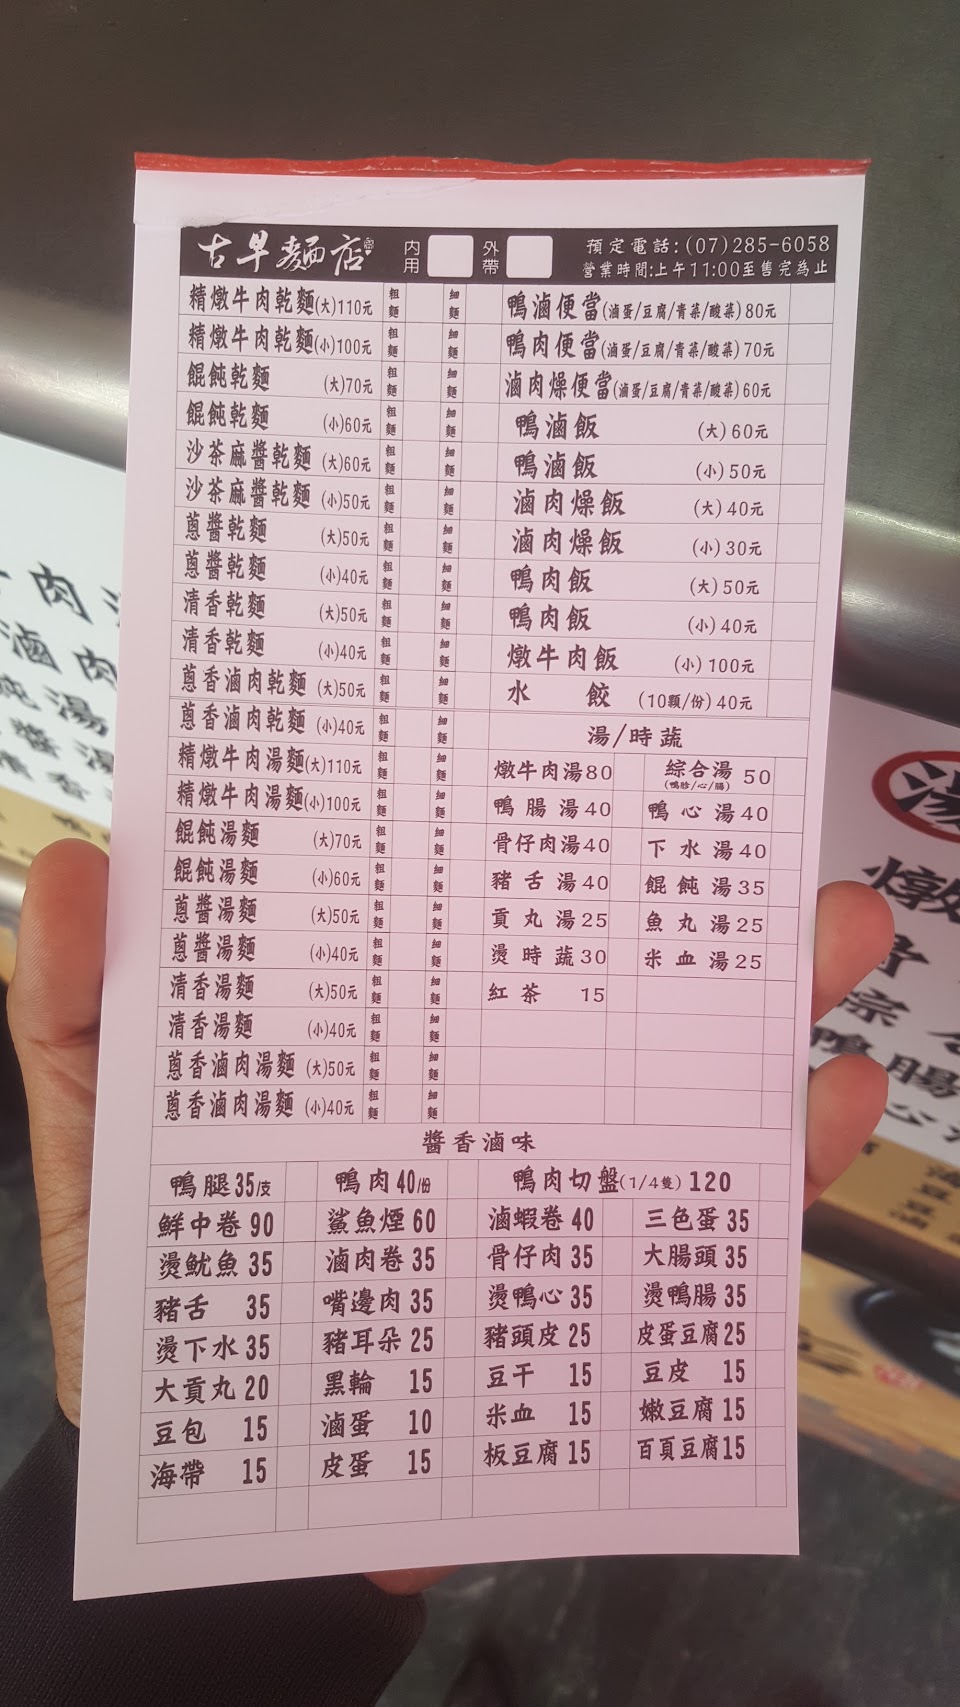 古早麵店
內用
外帶
預定電話:(07)285-6058
營業時間:上午11:00至售完為止
精燉牛肉乾麵(大)110元 粗麵 細麵
精燉牛肉乾麵(小)100元 粗麵 細麵
餛飩乾麵 (大)70元 粗麵 細麵
餛飩乾麵 (小)60元 粗麵 細麵
沙茶麻醬乾麵 (大)60元 粗麵 細麵
沙茶麻醬乾麵 (小)50元 粗麵 細麵
蔥醬乾麵 (大)50元 粗麵 細麵
蔥醬乾麵 (小)40元 粗麵 細麵
清香乾麵 (大)50元 粗麵 細麵
清香乾麵 (小)40元 粗麵 細麵
蔥香滷肉乾麵 (大)50元 粗麵 細麵
蔥香滷肉乾麵 (小)40元 粗麵 細麵
精燉牛肉湯麵(大)110元 粗麵 細麵
精燉牛肉湯麵(小)100元 粗麵 細麵
餛飩湯麵 (大)70元 粗麵 細麵
餛飩湯麵 (小)60元 粗麵 細麵
蔥醬湯麵 (大)50元 粗麵 細麵
蔥醬湯麵 (小)40元 粗麵 細麵
清香湯麵 (大)50元 粗麵 細麵
清香湯麵 (小)40元 粗麵 細麵
蔥香滷肉湯麵 (大)50元 粗麵 細麵
蔥香滷肉湯麵 (小)40元 粗麵 細麵
鴨滷便當(滷蛋/豆腐/青菜/酸菜)80元
鴨肉便當(滷蛋/豆腐/青菜/酸菜)70元
滷肉燥便當(滷蛋/豆腐/青菜/酸菜)60元
鴨滷飯 (大)60元
鴨滷飯 (小)50元
滷肉燥飯 (大)40元
滷肉燥飯 (小)30元
鴨肉飯 (大)50元
鴨肉飯 (小)40元
燉牛肉飯 (小)100元
水餃 (10顆/份)40元
湯/時蔬
燉牛肉湯80 綜合湯(鴨胗/心/腸) 50
鴨腸湯40 鴨心湯40
骨仔肉湯40 下水湯40
豬舌湯40 餛飩湯35
貢丸湯25 魚丸湯25
燙時蔬30 米血湯25
紅茶 15
醬香滷味
鴨腿35/支 鴨肉40/份 鴨肉切盤(1/4隻)120
鮮中卷90 鯊魚煙60 滷蝦卷40 三色蛋35
燙魷魚35 滷肉卷35 骨仔肉35 大腸頭35
豬舌 35 嘴邊肉35 燙鴨心35 燙鴨腸35
燙下水35 豬耳朵25 豬頭皮25 皮蛋豆腐25
大貢丸20 黑輪 15 豆干 15 豆皮 15
豆包 15 滷蛋 10 米血 15 嫩豆腐15
海帶 15 皮蛋 15 板豆腐15 百頁豆腐15